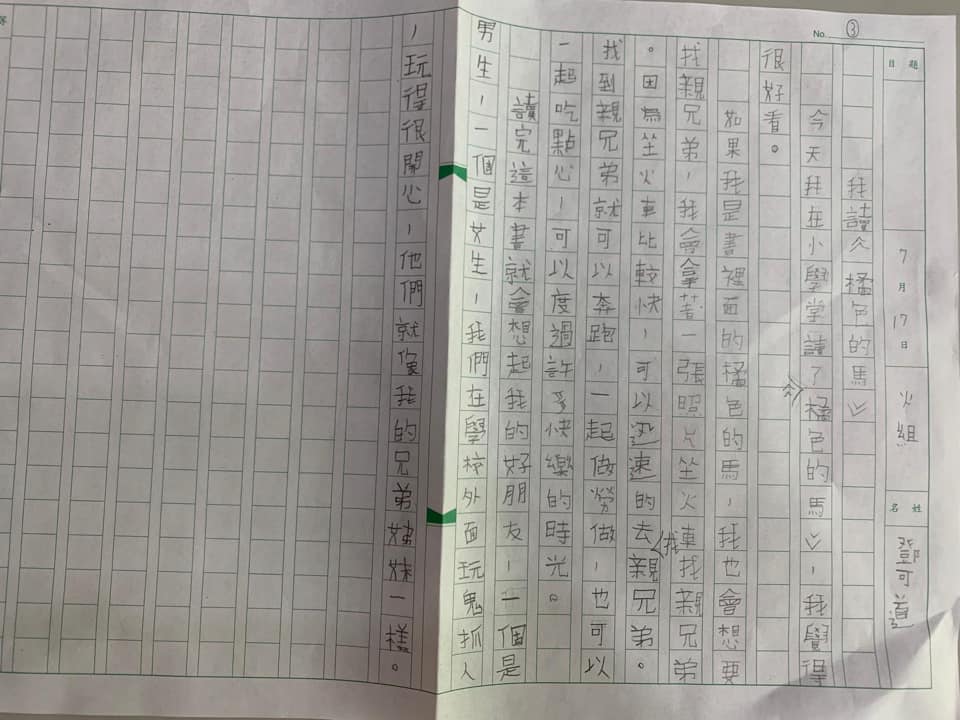 No. ③
題目
7月17日
火組
姓名
鄧可道
我讀《橘色的馬》
今天我在小學堂讀了《橘色的馬》,我覺得
很好看。
如果我是書裡面的橘色的馬,我也會想要
找親兄弟,我會拿著一張照片坐火車找親兄弟
。因為坐火車比較快,可以迅速的去找親兄弟。
找到親兄弟就可以奔跑,一起做勞做,也可以
一起吃點心,可以度過許多快樂的時光。
讀完這本書就會想起我的好朋友,一個是
男生,一個是女生,我們在學校外面玩鬼抓人
,玩得很開心,他們就像我的兄弟姊妹一樣。